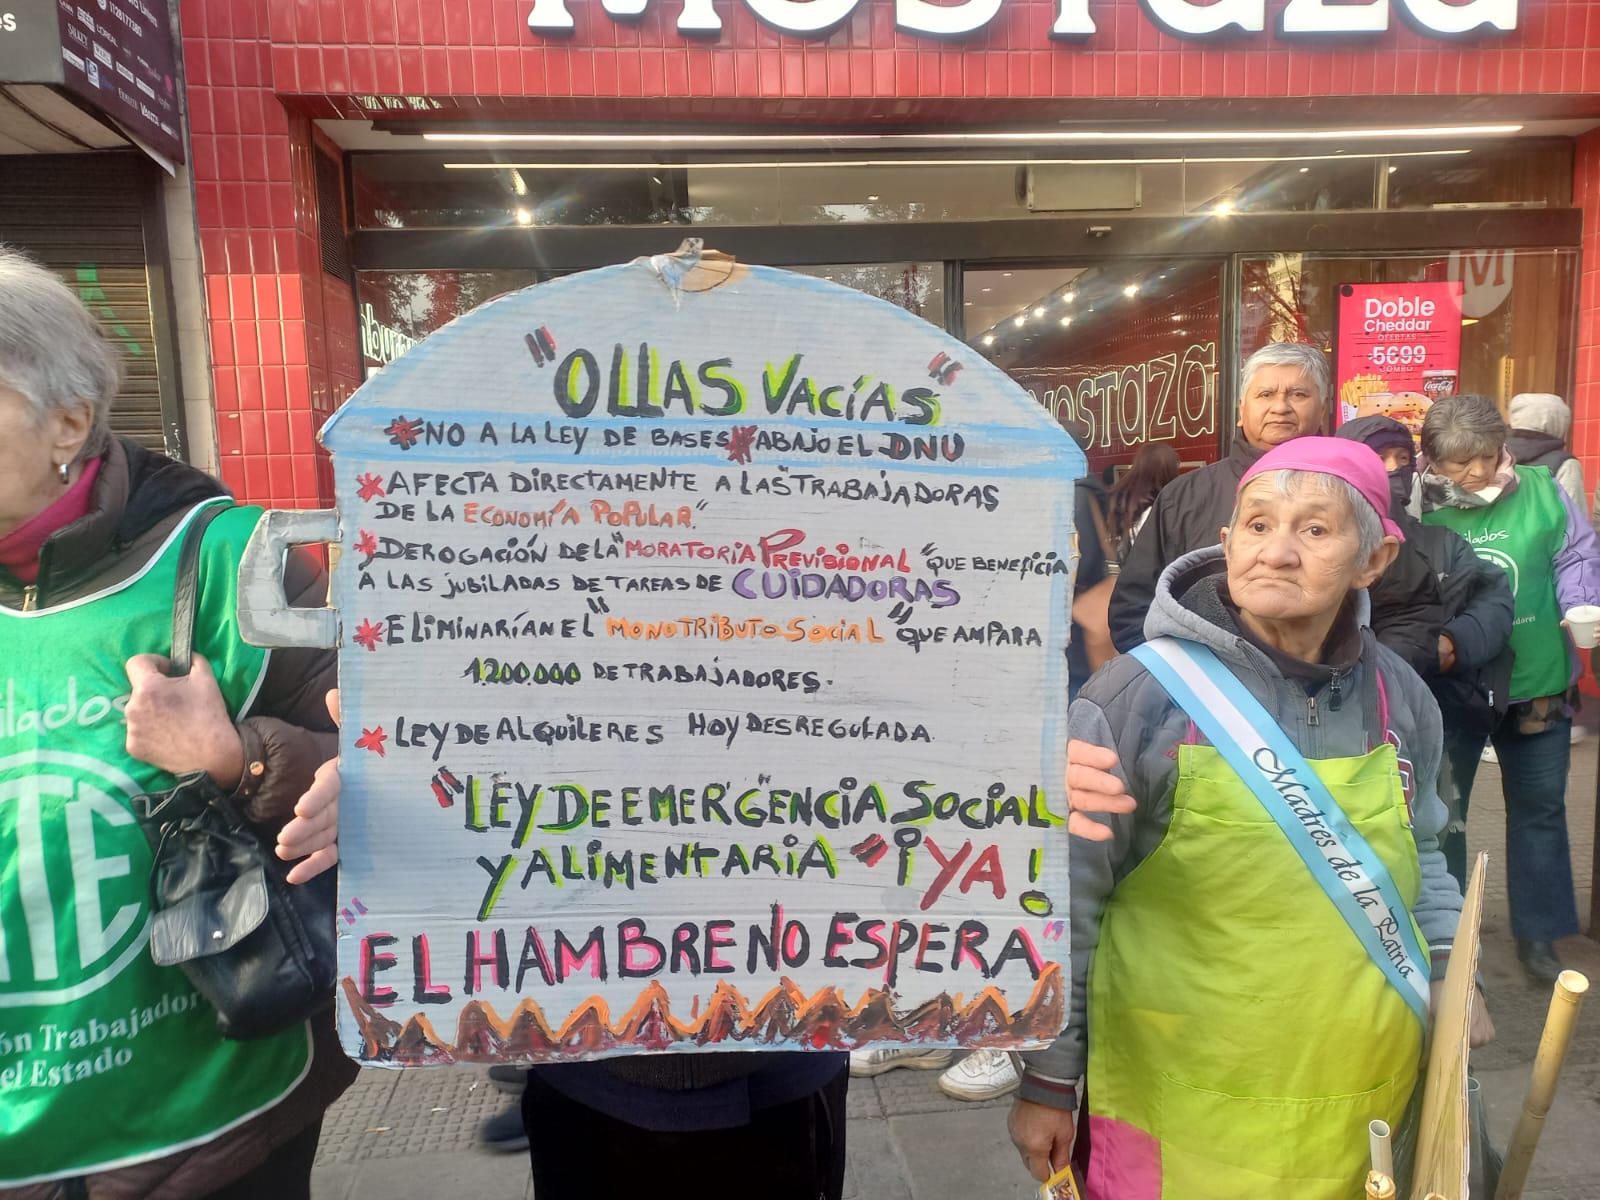 1128177380
MOSTAZA
Doble
Cheddar
OFERTAS
$5699
COMBO
Coca-Cola
M
MOSTAZA
"OLLAS VACÍAS"
*NO A LA LEY DE BASES * ABAJO EL DNU
*AFECTA DIRECTAMENTE A LAS TRABAJADORAS
DE LA ECONOMÍA POPULAR."
*DEROGACIÓN DE LA "MORATORIA PREVISIONAL" QUE BENEFICIA
A LAS JUBILADAS DE TAREAS DE CUIDADORAS
*ELIMINARÍAN EL "MONOTRIBUTO SOCIAL" QUE AMPARA
1.200.000 DE TRABAJADORES.
*LEY DE ALQUILERES HOY DESREGULADA.
"LEY DE EMERGENCIA SOCIAL
Y ALIMENTARIA" ¡YA!
"EL HAMBRE NO ESPERA"
Madres de la Patria
ilados
ATE
ón Trabajador
el Estado